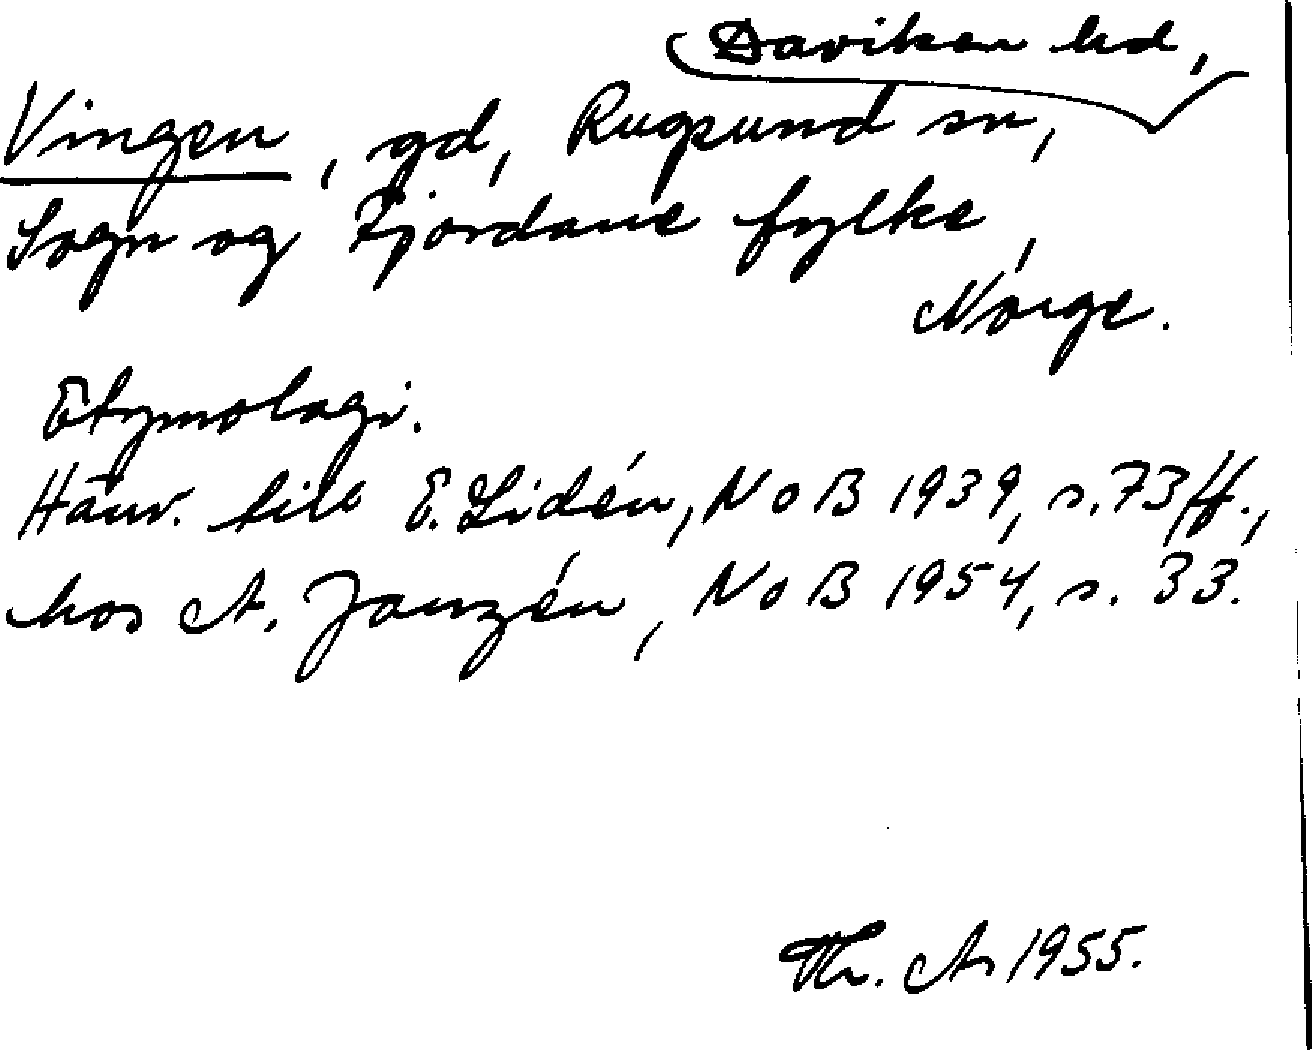 Daviken hd,
Vingen, gd, Rugsund sn,
Sogn og Fjordane fylke,
Norge.
Etymologi.
Hänv. till E. Lidén, NoB 1939, s. 73 ff.,
hos A. Janzén, NoB 1954, s. 33.
Th. A 1955.